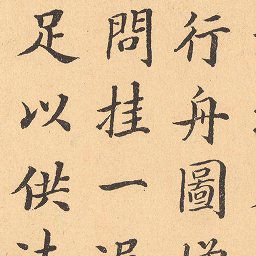 行舟圖
問挂一
足以供